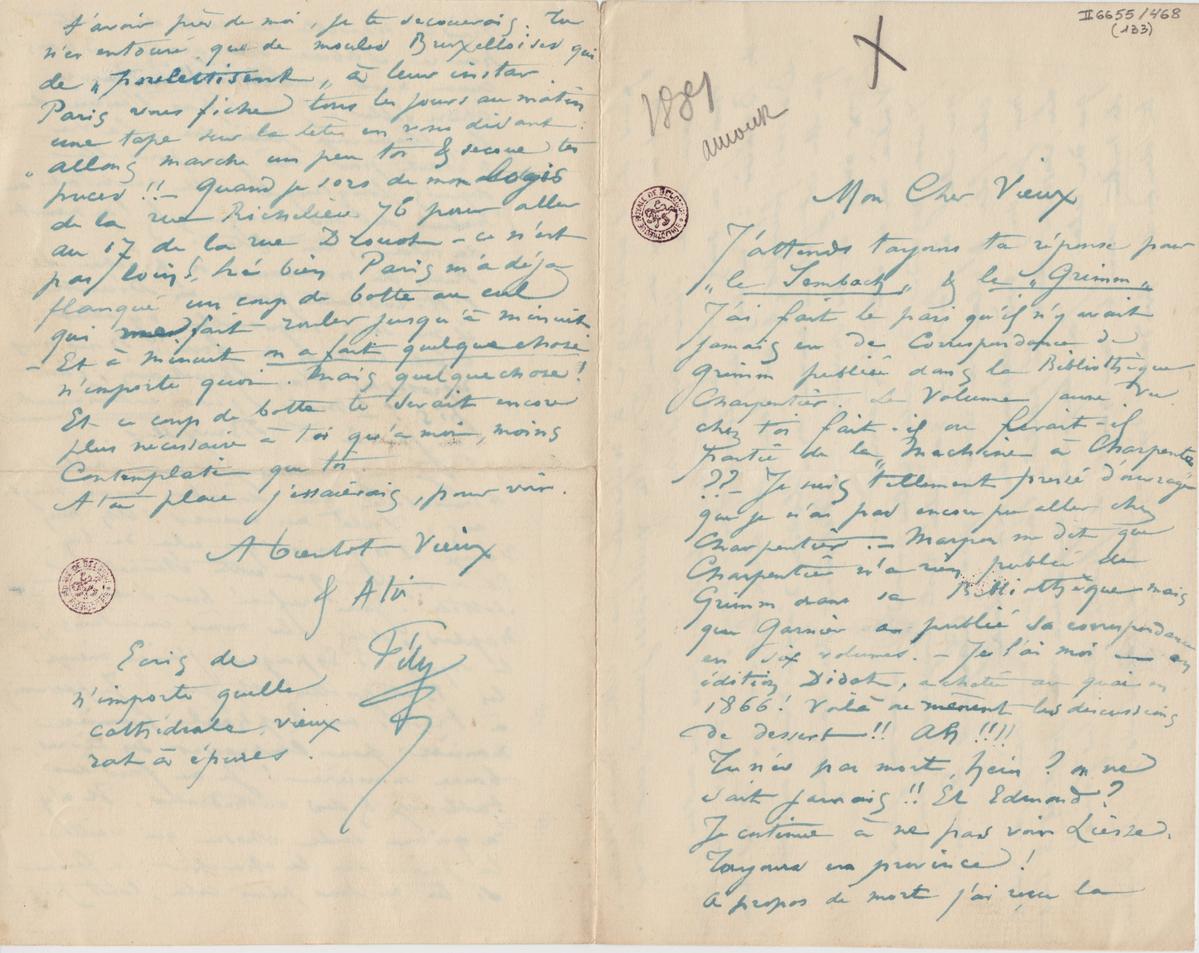 II 6655/468
(133)
X
1881
amouk
Mon Cher Vieux
J'attends toujours ta réponse pour
„le Sembach„ & le „Grimm„
J'ai fait le pari qu'il n'y avait
jamais eu de Correspondance de
Grimm publiée dans la Bibliothèque
Charpentier. Le Volume jaune Vu
chez toi fait-il ou ferait-il
partie de la „Machine à Charpentier
??- Je suis tellement pressé d'ouvrage
que je n'ai pas encore pu aller chez
Charpentier. - Marpon me dit que
Charpentier n'a rien publié de
Grimm dans sa Bibliothèque mais
que Garnier a publié sa correspondance
en six volumes. - Je l'ai moi en
édition Didot, achetée au quai en
1866! Voilà où mènent les discussions
de dessert!! Ah!!!!
Tu n'es pas mort, hein? on ne
sait jamais!! Et Edmond?
Je continue à ne pas voir Liesse.
Toujours en province!
A propos de mort j'ai reçu la
t'avoir près de moi, je te secouerais. Tu
n'es entouré que de moules Bruxelloises qui
de „ „ à leur instar.
Paris vous fiche tous les jours au matin
une tape sur la tête en vous disant:
„allons marche un peu toi & secoue tes
puces!!- Quand je sors de mon logis
de la rue Richelieu 76 pour aller
au 17 de la rue Drouot - ce n'est
pas loin!, hé bien Paris m'a déjà
flanqué un coup de botte au cul
qui me fait rouler jusqu'à minuit
- Et à minuit on a fait quelque chose
n'importe quoi. Mais quelque chose!
Et ce coup de botte te serait encore
plus nécessaire à toi qu'à moi, moins
Contemplatif que toi.
A ta place j'essaierais, pour voir.
A bientôt Vieux
& A toi
Fély
Ecris de
n'importe quelle
cathédrale, vieux
rat à épures.